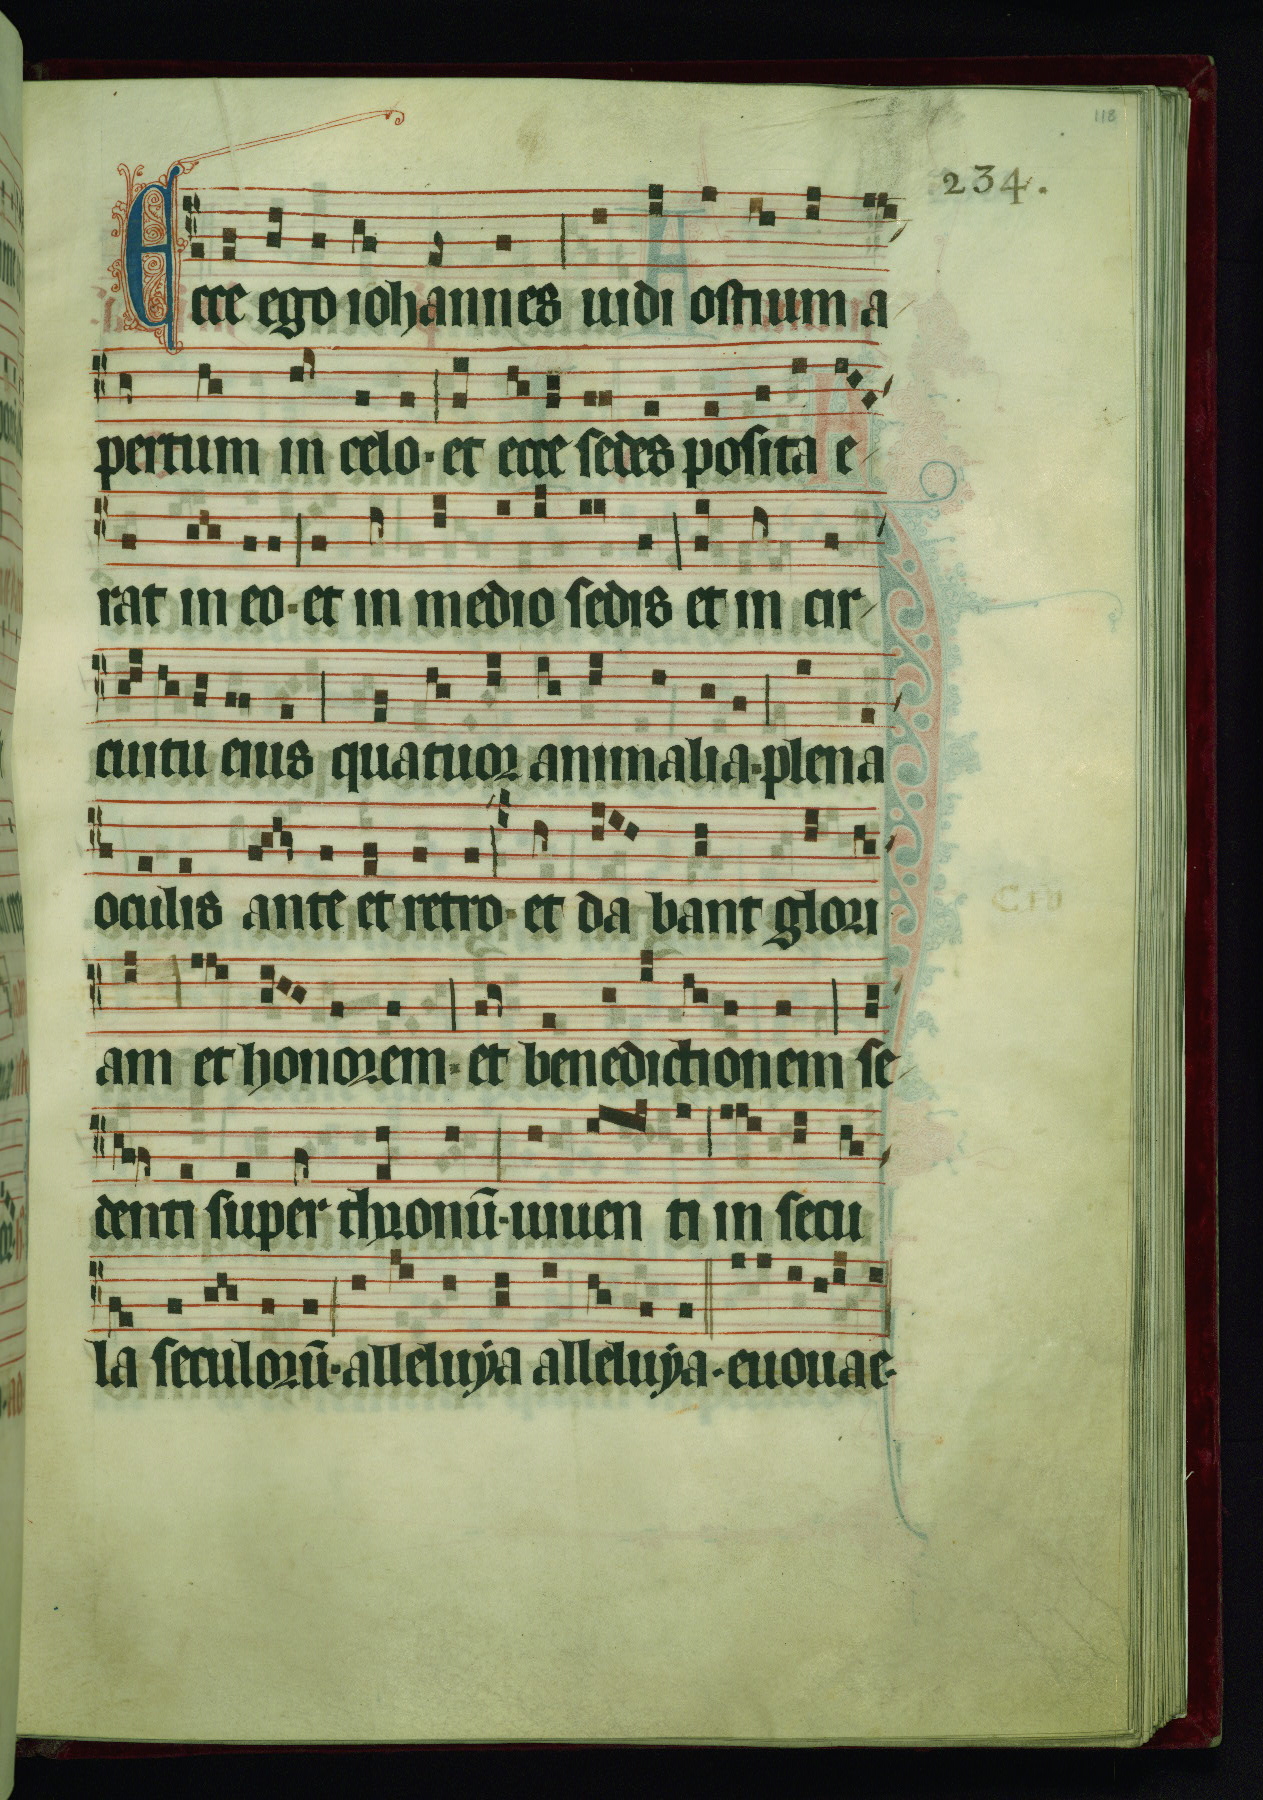 118
234.
Ecce ego iohannes uidi ostium a
pertum in celo · et ecce sedes posita e
rat in eo · et in medio sedis et in cir
cuitu eius quatuor animalia · plena
oculis ante et retro · et da bant glori
am et honorem · et benedictionem se
denti super thronū · uiuen ti in secu
la seculorū · alleluÿa alleluÿa · euouae ·